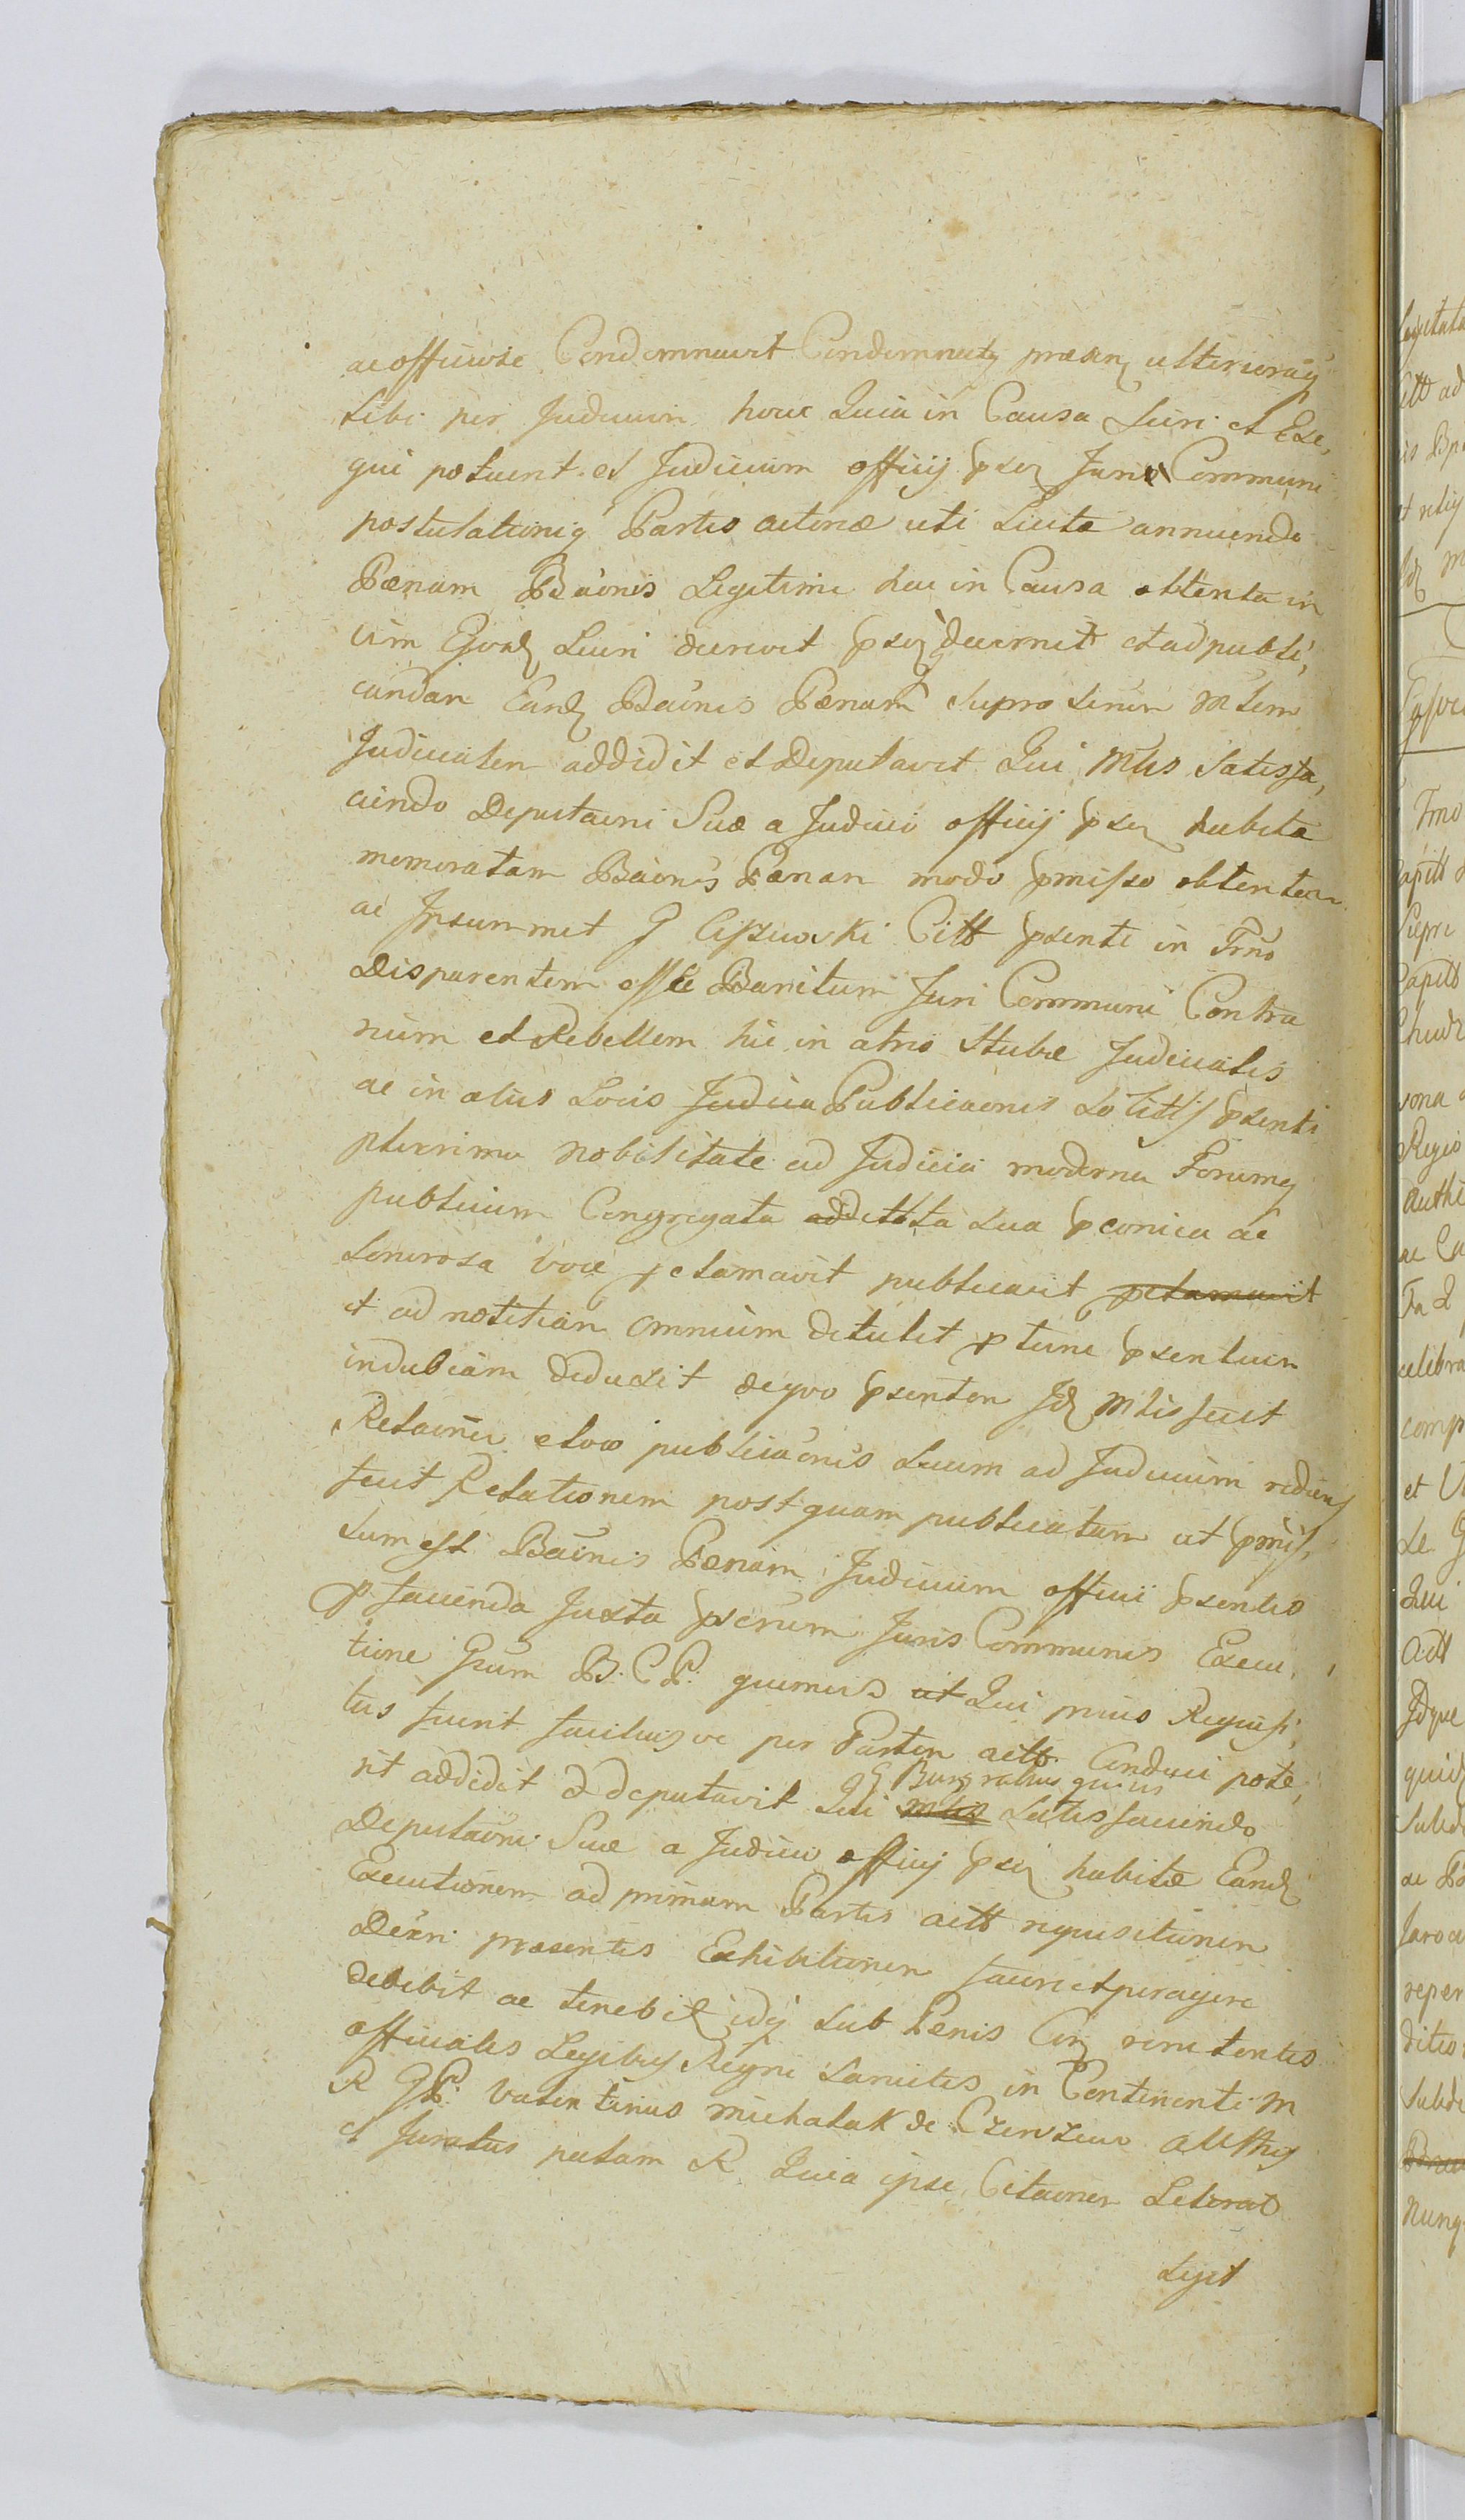 ac officiose Condemnavit Condemnatq praesen ulteriorq
sibi per Judicium hocce Quia in Causa Lucri et Exe,
qui potuerit et Judicium officij psen Juri Communi
postulationiq Partis actoreæ uti Licitæ annuendo
Pænam Baõnis Legitime hac in Causa obtenta in
vim Ejusd Lucri decrevit psen decernit et ad publi,
candam Eand Baõnis Pænam supra serium Mlem
Judicialem addidit et Deputavit Qui Mlis Satisfa,
ciendo Deputaõni Suæ a Judicio officij psen habitæ
memoratam Baõnis Pænam modo pmisso obtentam
ac Ipsummet G Ciszewski Citt psenti in Trno
Disparentem esse Banitum Juri Communi Contra
rium et Rebellem hic in atrio Stubæ Judicialis
ac in aliis Locis Judicia Publicaõnis solitis psenti
plurima nobilitate ad Judicia moderna Forumq
publicum Congregata addetta sua pconica ac
sonorosa voce pclamavit publicavit pclamavit
et ad notitiam omnium detulit p tunc psentium
indubiam deduxit de quo psentem Id Mlis fecit
Relaõnem e loco publicaõnis suum ad Judicium rediens
fecit Relationem postquam publicatam ut pmis,
sum est Baõnis Pænam Judicium officii psentis
P facienda Juxta pscrum Juris Communis Execu,
tione Grum B. C. P. quemvis ut Qui prius Requisi,
tus fuerit faciliusve per Partem actt. Conduci pote,
rit addidit & deputavit Qui Mlis G Burgrabius quivis satisfaciendo
Deputaõni Suæ a Judicio officij psen habitæ Eand
Executionem ad primam Partis actt requisitionem
Decri præsentis Exhibitionem facere et peragere
debebit ac tenebit idq sub Penis Con renitentes
officiales Legibus Regni sancitis in Continenti M
R G P. Valentinus Michalak de Czerzewo Authq
et Juratus palam R Quia ipse Citaõnem Literat
Legit